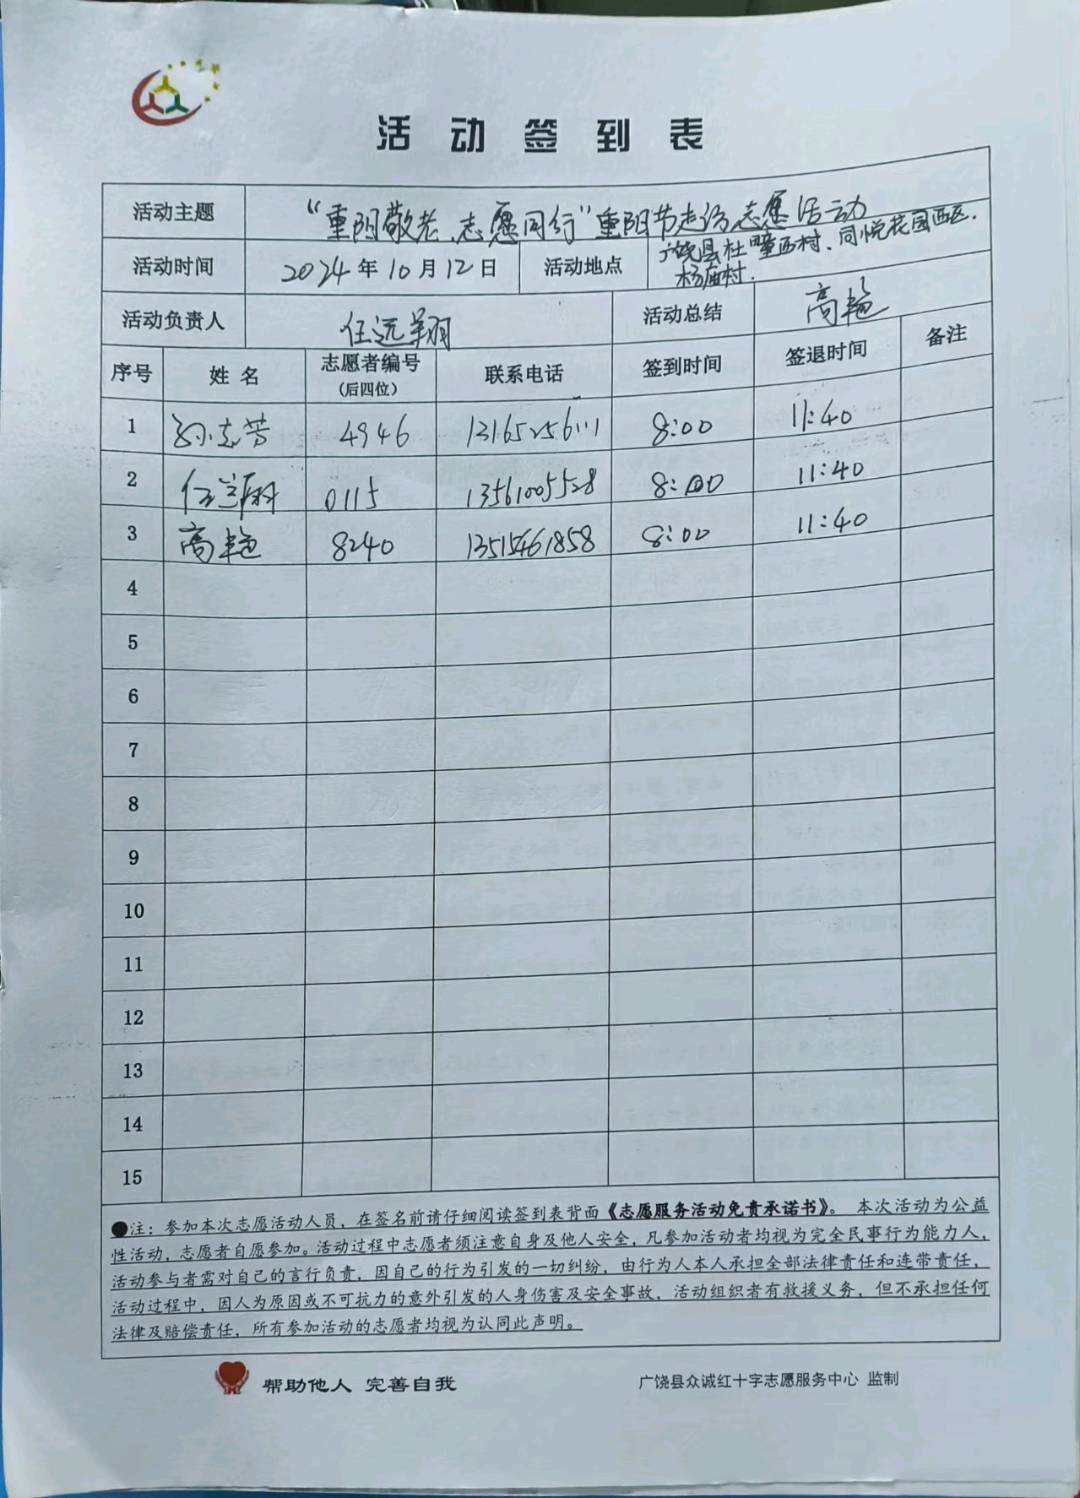 活动签到表
活动主题 “重阳敬老、志愿同行”重阳节走访志愿活动
活动时间 2024年10月12日 活动地点 广饶县杜疃西村、同悦花园西区、
杨庙村.
活动负责人 任远翔 活动总结 高艳
序号 姓名 志愿者编号 联系电话 签到时间 签退时间 备注
(后四位)
1 孙志芳 4946 13165256111 8:00 11:40
2 0115 13561005528 8:00 11:40
3 高艳 8240 13515461858 8:00 11:40
4
5
6
7
8
9
10
11
12
13
14
15
●注：参加本次志愿活动人员，在签名前请仔细阅读签到表背面《志愿服务活动免责承诺书》。 本次活动为公益
性活动，志愿者自愿参加。活动过程中志愿者须注意自身及他人安全，凡参加活动者均视为完全民事行为能力人，
活动参与者需对自己的言行负责，因自己的行为引发的一切纠纷，由行为人本人承担全部法律责任和连带责任，
活动过程中，因人为原因或不可抗力的意外引发的人身伤害及安全事故，活动组织者有救援义务，但不承担任何
法律及赔偿责任，所有参加活动的志愿者均视为认同此声明。
帮助他人 完善自我 广饶县众诚红十字志愿服务中心 监制